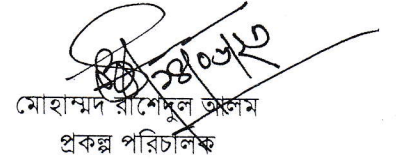 ১৪/০৬/২৩
মোহাম্মদ রাশেদুল আলম
প্রকল্প পরিচালক